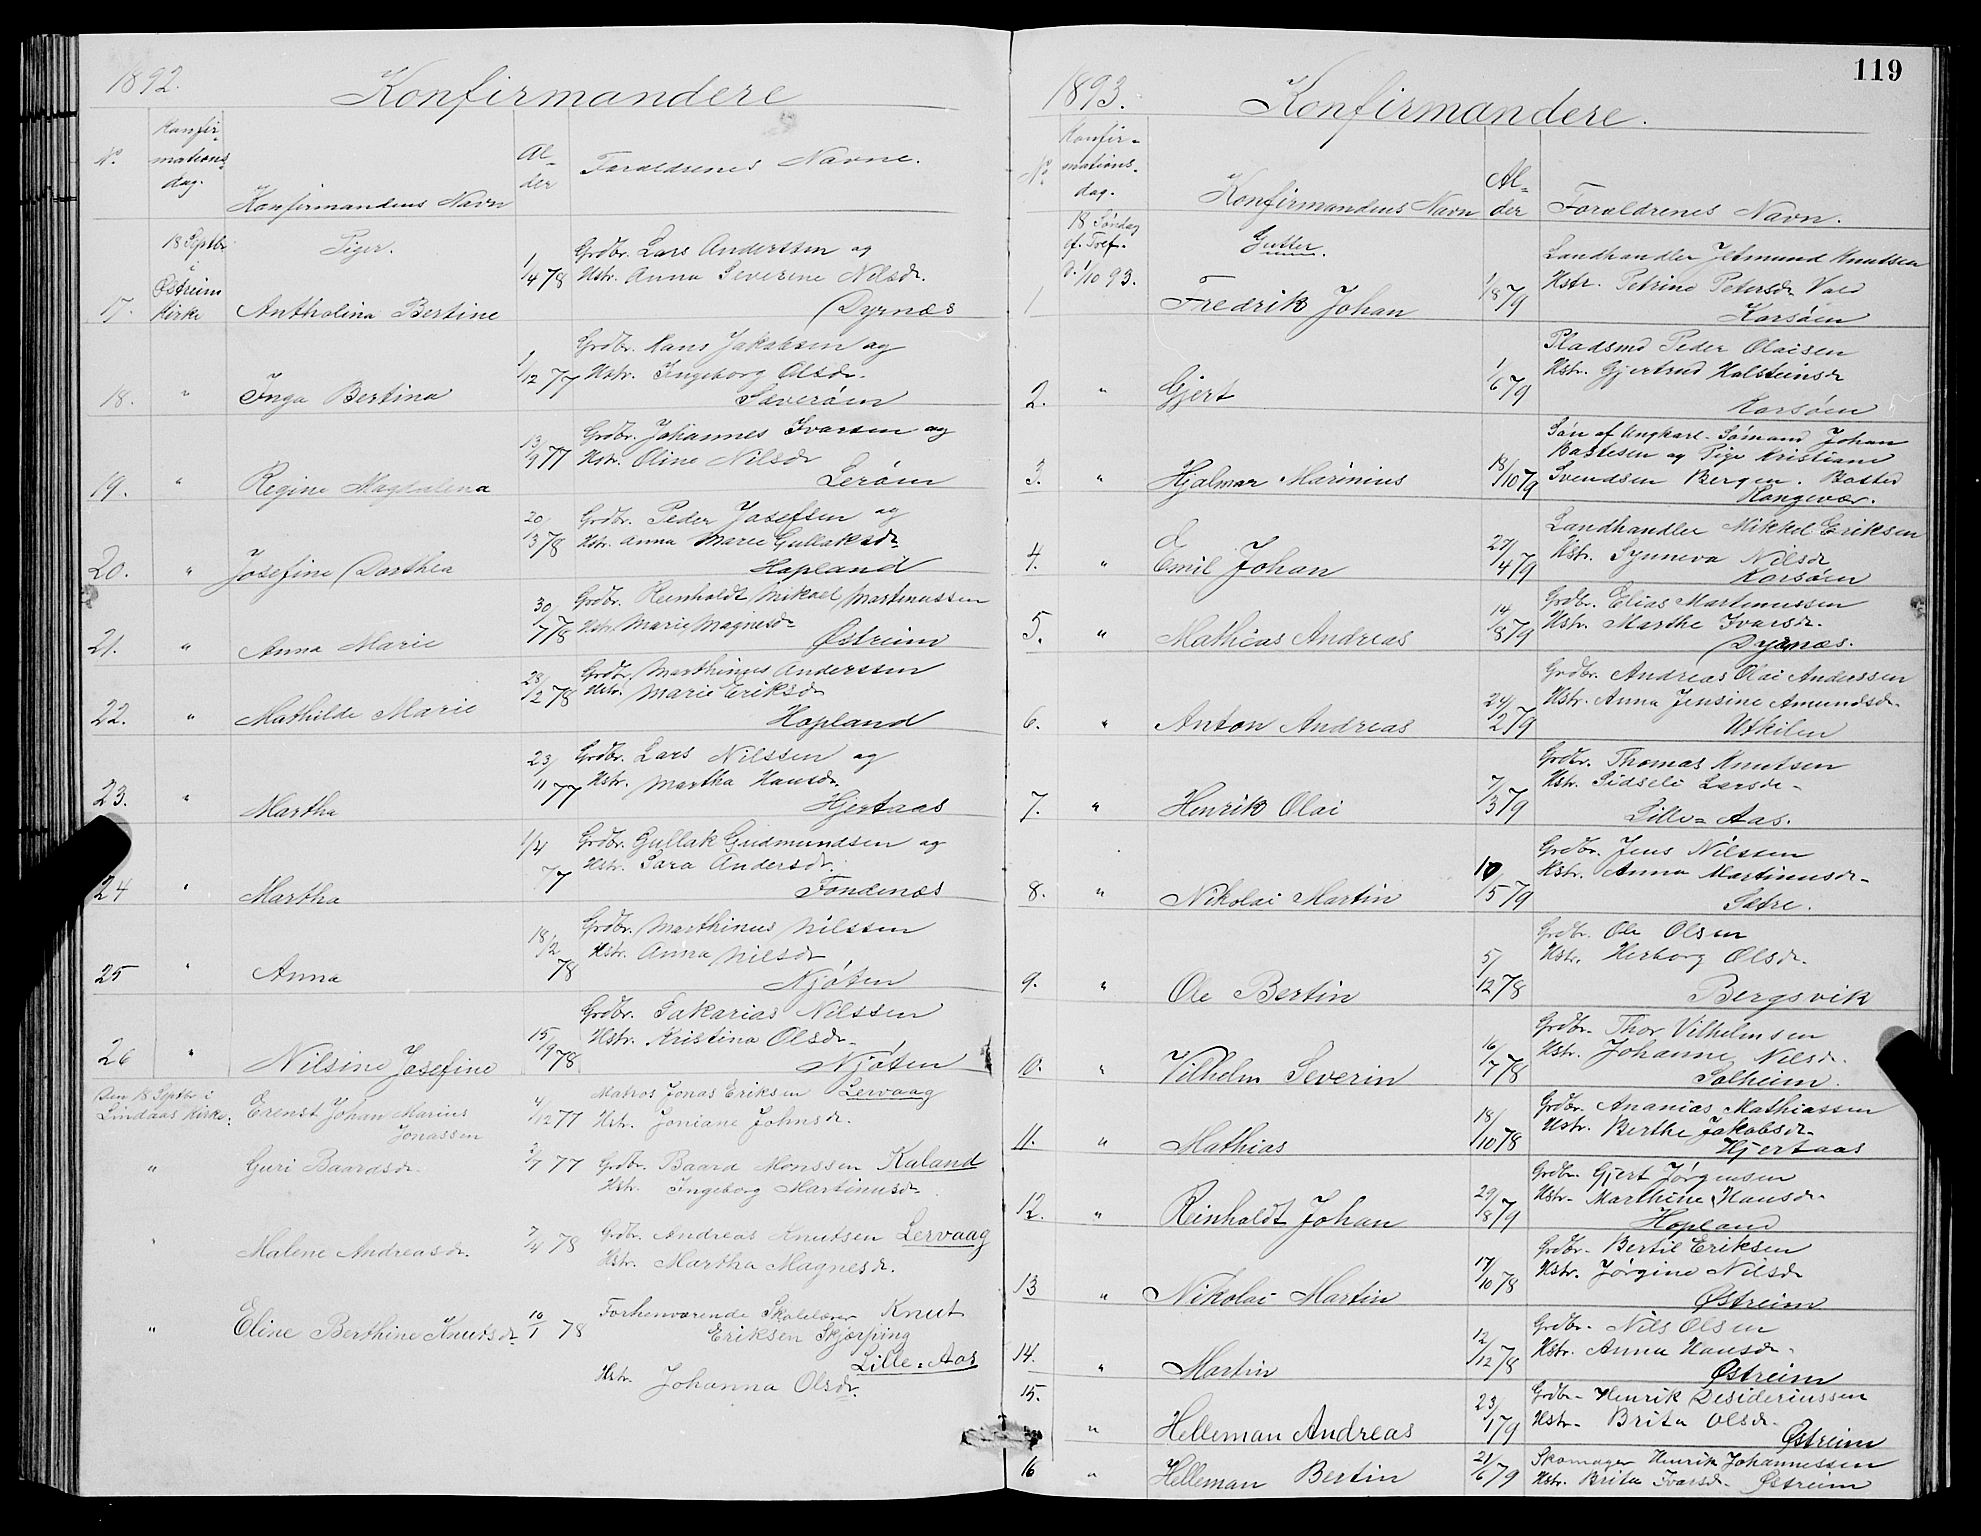 1892.
Konfirmandere
No.
Konfir-
mations
dag.
Konfirmandens Navn
Al-
der
Foraldrenes Navne.
18 Septbr
i
Østreim
Kirke
Piger.
17.
Antholina Bertine
1/4 78
Grdbr. Lars Anderssen og
Hstr. Anna Severine Nilsdr.
Dyrnæs
18.
"
Inga Bertina
1/12 77
Grdbr. Hans Jakobsen og
Hstr. Ingeborg Olsdr.
Sæverøen
19.
"
Regine Magdalena
13/9 77
Grdbr. Johannes Ivarsen og
Hstr. Oline Nilsdr
Lerøen
20.
"
Josefine Dorthea
20/3 78
Grdbr. Peder Josefsen og
Hstr. Anna Marie Gullaksdr
Hopland
21.
"
Anna Marie
30/7 78
Grdbr. Reinholdt Mikael Martinussen
Hstr. Marie Magnesdr
Østreim
22.
"
Mathilde Marie
28/12 78
Grdbr. Marthinus Anderssen
Hstr. Marie Eriksdr
Hopland
23.
"
Martha
23/11 77
Grdbr. Lars Nilssen og
Hstr. Martha Hansdr.
Hjertaas
24
"
Martha
1/4 77
Grdbr. Gullak Gudmundsen og
Hstr. Sara Andersdr.
Fondenæs
25
"
Anna
18/2 78
Grdbr. Marthinus Nilssen
Hstr. Anna Nilsdr
Njøten
26
"
Nilsine Josefine
15/9 78
Grdbr. Sakarias Nilssen
Hstr. Kristina Olsdr.
Njøten
Den 18 Septbr i
Lindaas Kirke:
Erenst Johan Marius
Jonassen
4/12 77
Matros Jonas Eriksen Lervaag
Hstr. Joniane Johnsdr.
"
Guri Baardsdr.
2/7 77
Grdbr. Baard Monssen Kaland
Hstr. Ingeborg Martinusdr.
"
Malene Andreasdr.
7/4 78
Grdbr. Andreas Knutsen Lervaag
Hstr. Martha Magnesdr.
"
Eline Berthine Knutsdr
10/1 78
Forhenværende Skolelærer Knut
Eriksen Skjærping
Lille-Aas
Hstr. Johanna Olsdr.
119
1893.
Konfirmandere.
No
Konfir-
mations-
dag.
Konfirmandens Navn
Al-
der
Foraldrenes Navn.
18 Søndag
ef. Tref.
d. 1/10 93.
Gutter.
1
Fredrik Johan
1/8 79
Landhandler Jetmund Knutsen
Hstr. Petrine Petersdr Vold
Korsøen
2.
"
Gjert
1/6 79
Pladsmd Peder Olaisen
Hstr. Gjertrud Halsteinsdr
Korsøen
3.
"
Hjalmar Marinius
18/10 79
Søn af Ungkarl-Sømand Johan
Bastesen og Pige Kristiane
Svendsen Bergen. Bosted
Kongevær.
4.
"
Emil Johan
27/4 79
Landhandler Mikkel Eriksen
Hstr. Synneva Nilsdr
Korsøen
5.
"
Mathias Andreas
14/8 79
Grdbr. Elias Martinussen
Hstr. Marthe Ivarsdr.
Dyrnæs.
6.
"
Anton Andreas
24/2 79
Grdbr. Andreas Olai Anderssen
Hstr. Anna Jensine Amundsdr.
Utkilen
7.
"
Henrik Olai
7/3 79
Grdbr. Thomas Knutsen
Hstr. Sidseli Larsdr-
Lille-Aas.
8.
"
Nikolai Martin
10/5 79
Grdbr. Jens Nilssen
Hstr. Anna Martinusdr-
Sætre.
9.
"
Ole Bertin
5/12 78
Grdbr. Ole Olsen
Hstr. Herborg Olsdr.
Bergsvik
10.
"
Vilhelm Severin
16/7 78
Grdbr. Thor Vilhelmsen
Hstr. Johanne Nilsdr.
Solheim.
11.
"
Mathias
18/10 78
Grdbr. Ananias Mathiassen
Hstr. Berthe Jakobsdr.
Hjertaas
12.
"
Reinholdt Johan
29/8 79
Grdbr. Gjert Jørgensen
Hstr. Marthine Hansdr.
Hopland
13
"
Nikolai Martin
17/10 78
Grdbr. Bertil Eriksen
Hstr. Jørgine Nilsdr
Østreim
14.
"
Martin
12/12 78
Grdbr. Nils Olsen
Hstr. Anna Hansdr.
Østreim
15.
"
Helleman Andreas
23/1 79
Grdbr. Henrik Desideriussen
Hstr. Brita Olsdr.
Østreim
16
"
Helleman Bertin
21/6 79
Skomager Henrik Johannessen
Hstr. Brita Ivarsdr. Østreim